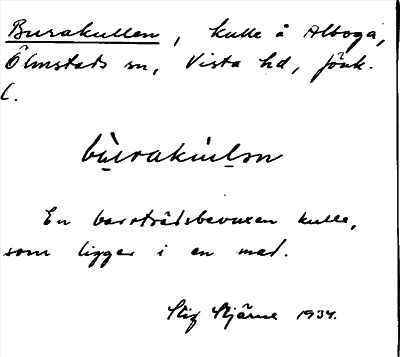 Burakullen, kulle å Alboga,
Ölmstads sn, Vista hd, Jönk.
l.
bu̠rakul̠ən
En barrträdsbevuxen kulle,
som ligger i en mad.
Stig Stjärne 1934.